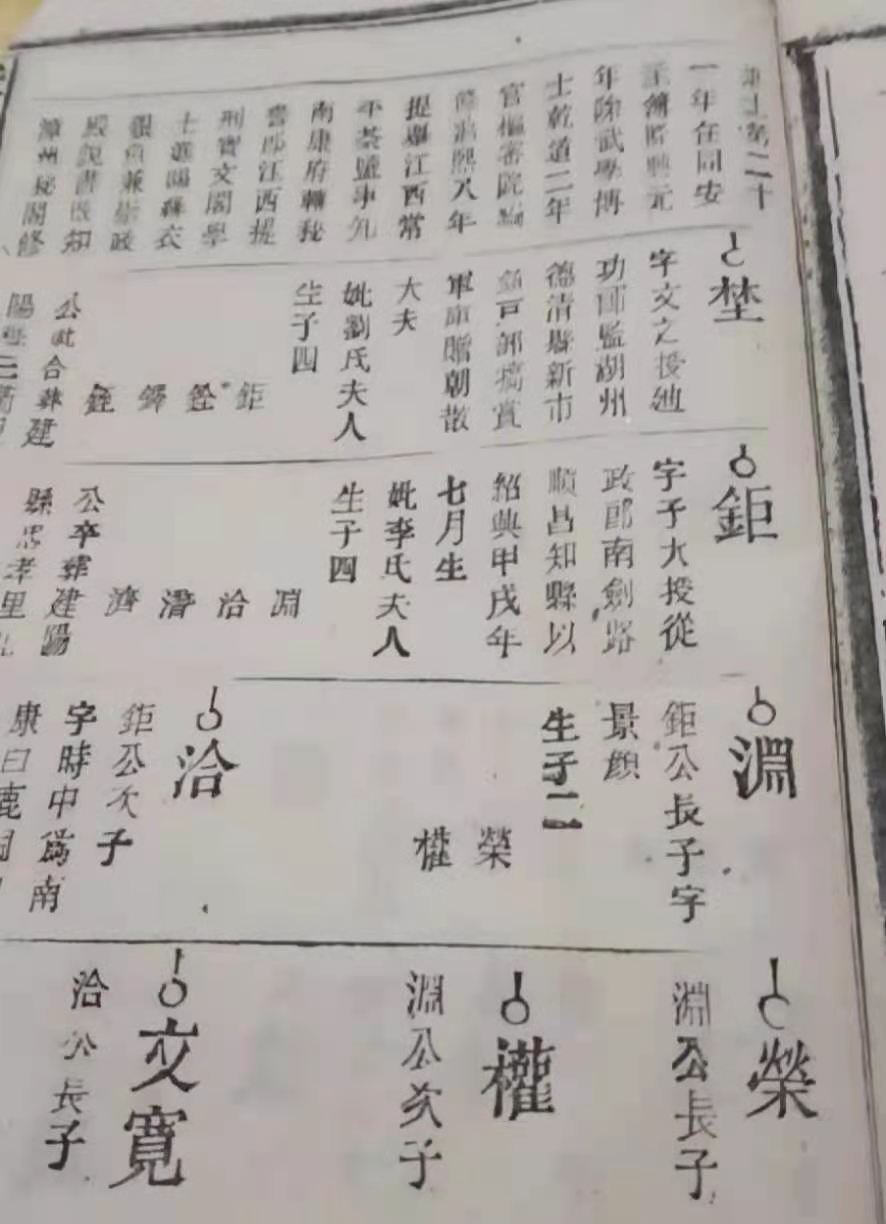 一年在同安
年除武學博
士乾道二年
官樞密院編
修淳熙八年
提舉江西常
平茶鹽事知
南康府轉秘
江西提
刑寶文閣學
士
殿說書
漳州秘閣修
埜
字文之授迪
功郎監湖州
德清縣新市
戶部犒賞
軍庫贈朝散
大夫
妣劉氏夫人
生子四
鉅
銓
鐸
公妣合葬建
陽
鉅
字子大授從
政郎南劍路
順昌知縣以
紹興甲戌年
七月生
妣李氏夫人
生子四
淵
洽
濟
公卒葬建陽
縣忠孝里
淵
鉅公長子字
景顏
生子二
榮
權
洽
鉅公次子
字時中為南
康白鹿洞
榮
淵公長子
權
淵公次子
文寬
洽公長子